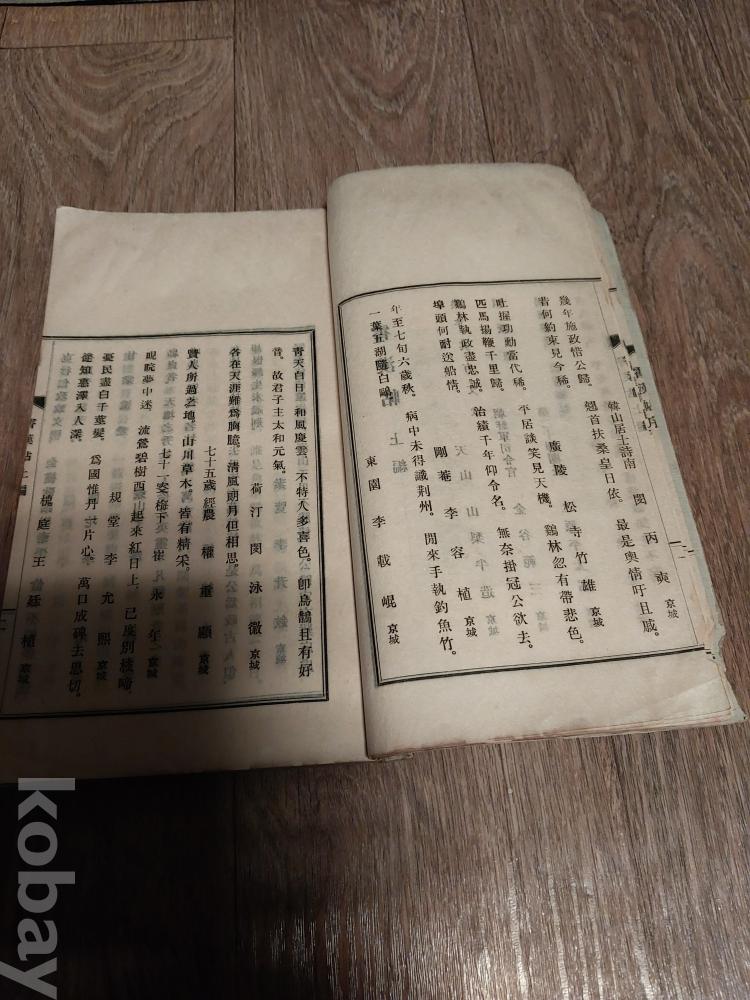 幾年施政惜公歸。翹首扶桑皇日依。最是輿情吁且戚。
韓山居士詩南 閔丙奭 京城
昔何約束見今稀。平居談笑見天機。鷄林忽有帶悲色。
廣陵 松寺竹雄 京城
吐握功動當代稀。治績千年仰令名。無奈掛冠公欲去。
匹馬揚鞭千里歸。
天山 山梨半造
鷄林執政盡忠誠。
剛菴 李容植 京城
埠頭何耐送船情。
年至七旬六歲秋。病中未得識荆州。閒來手執釣魚竹。
一葉五湖 白鷗
東園 李載崐 京城
青天白日。和風慶雲。不特人多喜色。卽烏鵲且有好
音。故君子主太和元氣。
荷汀 閔泳徽 京城
各在天涯難爲胸臆。淸風朗月但相思。
七十五歲 經農 權重顯 京城
賢人所過之地。山川草木 皆有精采。
七十一 梅下 崔永年 京城
睍睆夢中迷。流鶯碧樹西。起來紅日上。已度別枝啼。
規堂 李允熙 京城
憂民盡白千莖髮。爲國惟丹一片心。萬口成碑去思切。
惠澤入人深。
槐庭 王 植 京城
kobay